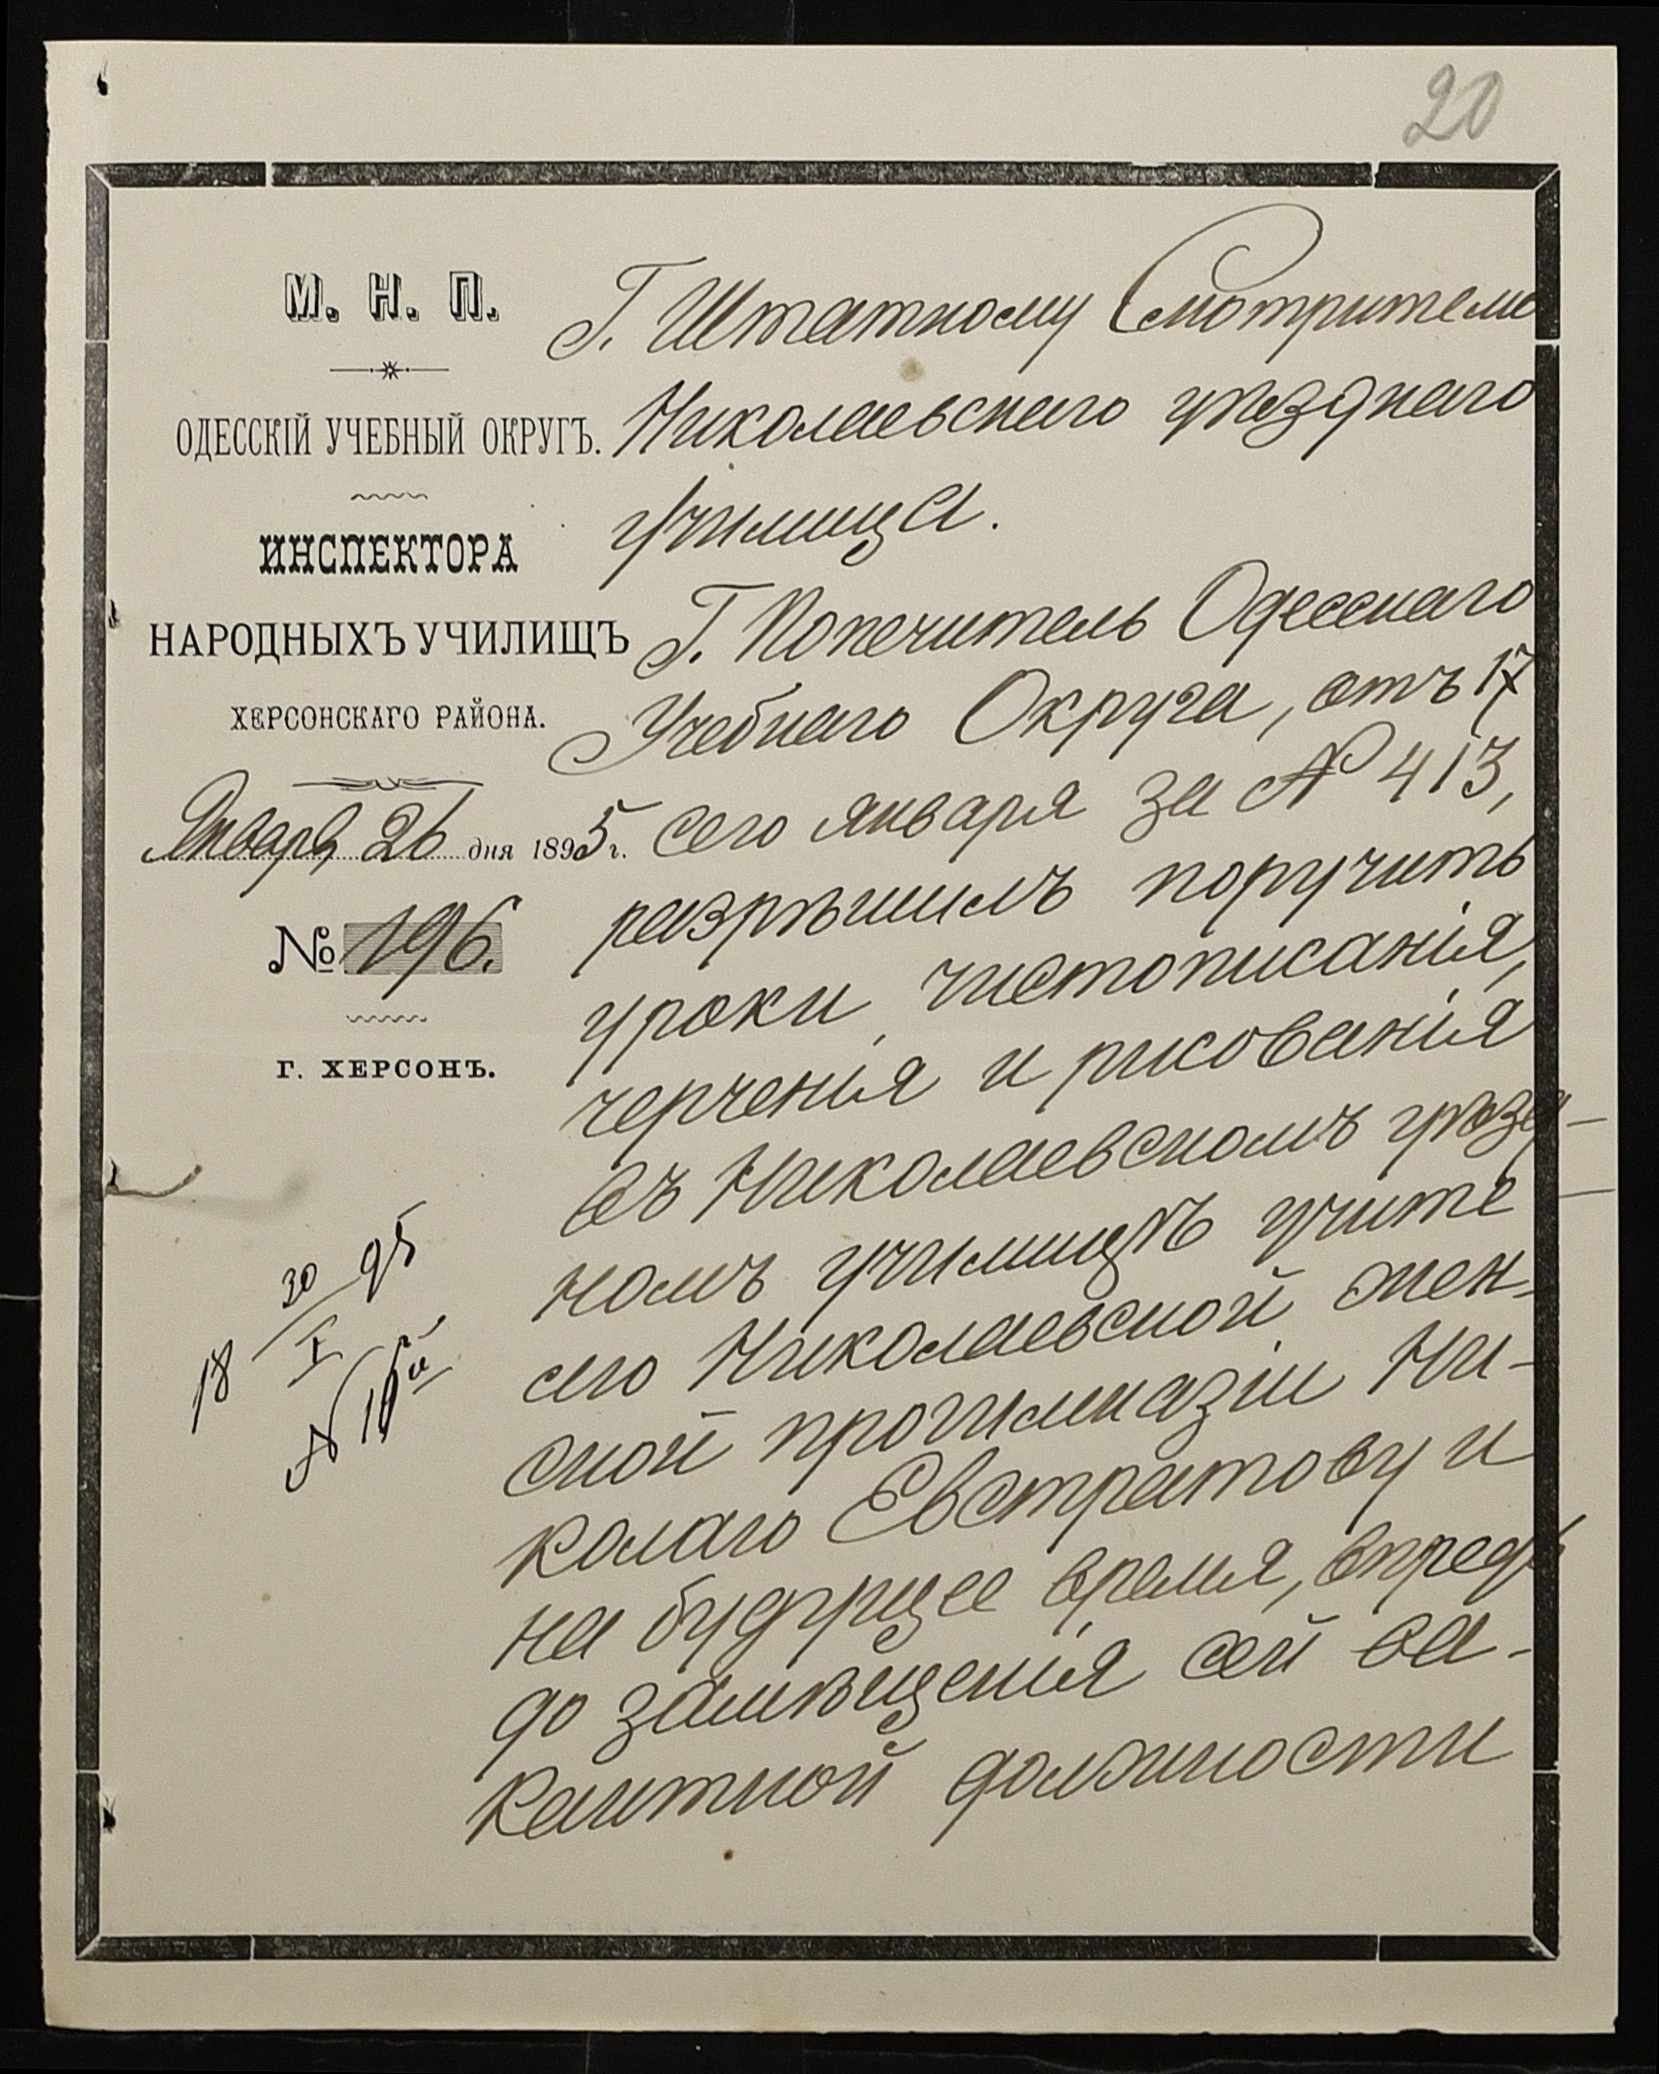 20
М. Н. П.
ОДЕССКІЙ УЧЕБНЫЙ ОКРУГЪ.
ИНСПЕКТОРА
НАРОДНЫХЪ УЧИЛИЩЪ
ХЕРСОНСКАГО РАЙОНА.
Января 26 дня 1895 г.
№ 196.
Г. ХЕРСОНЪ.
18 30/I 95
Г. Штатному Смотрителю
Николаевскаго уѣзднаго
училища.
Г. Попечитель Одесскаго
Учебнаго Округа, отъ 17
сего января за № 413,
разрѣшилъ поручить
уроки чистописанія,
черченія и рисованія
въ Николаевскомъ уѣзд-
номъ училищѣ учите
Николаевской жен-
ской прогимназіи Ни-
колаю Евстратову и
на будущее время, впредь
до замѣщенія сей ва-
кантной должности